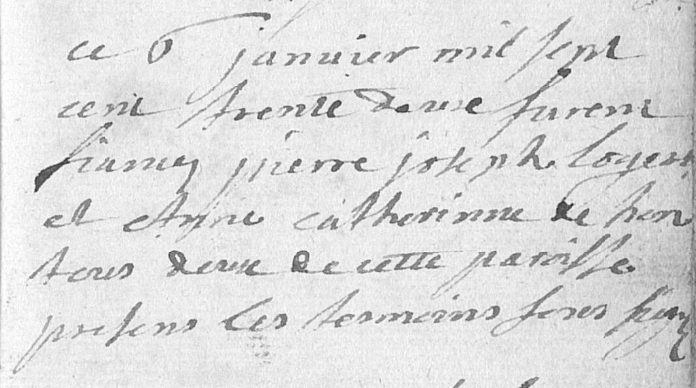 ce 6 janvier mil sept
cent trente deuxe furent
fiancy pierre joseph logen
et Anne catherinne de hon
tous deux de cette paroisse
presens les temoins sous signé